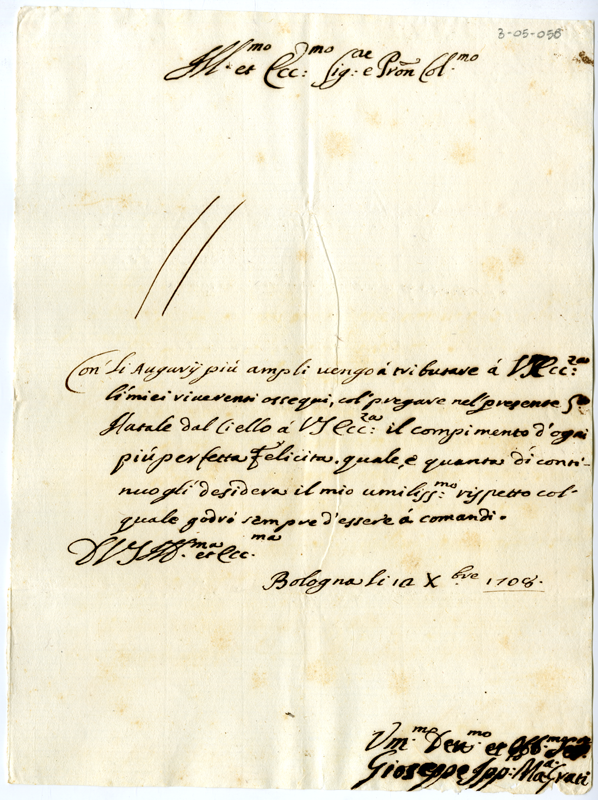 3-05-056
Ill.mo et Ecc:mo Sig:re e Pron Col.mo
Con' Li Augurij piú ampli vengo á tributare á V.S. Ecc:za
li miei riverenti ossequi, col' pregare nel' presente S.to
Natale dal Ciello á VS Ecc:za il compimento d'ogni
piú perfetta Felicita. quale, è quanta di conti-
nuo gli desidera il mio umiliss:mo rispetto col'
quale godró sempre d'essere á comandi.
D VS Ill.ma et Ecc.ma
Bologna li Xbre 1708.
Um.mo Dev.mo et Obb.
Gioseppe Ipp: